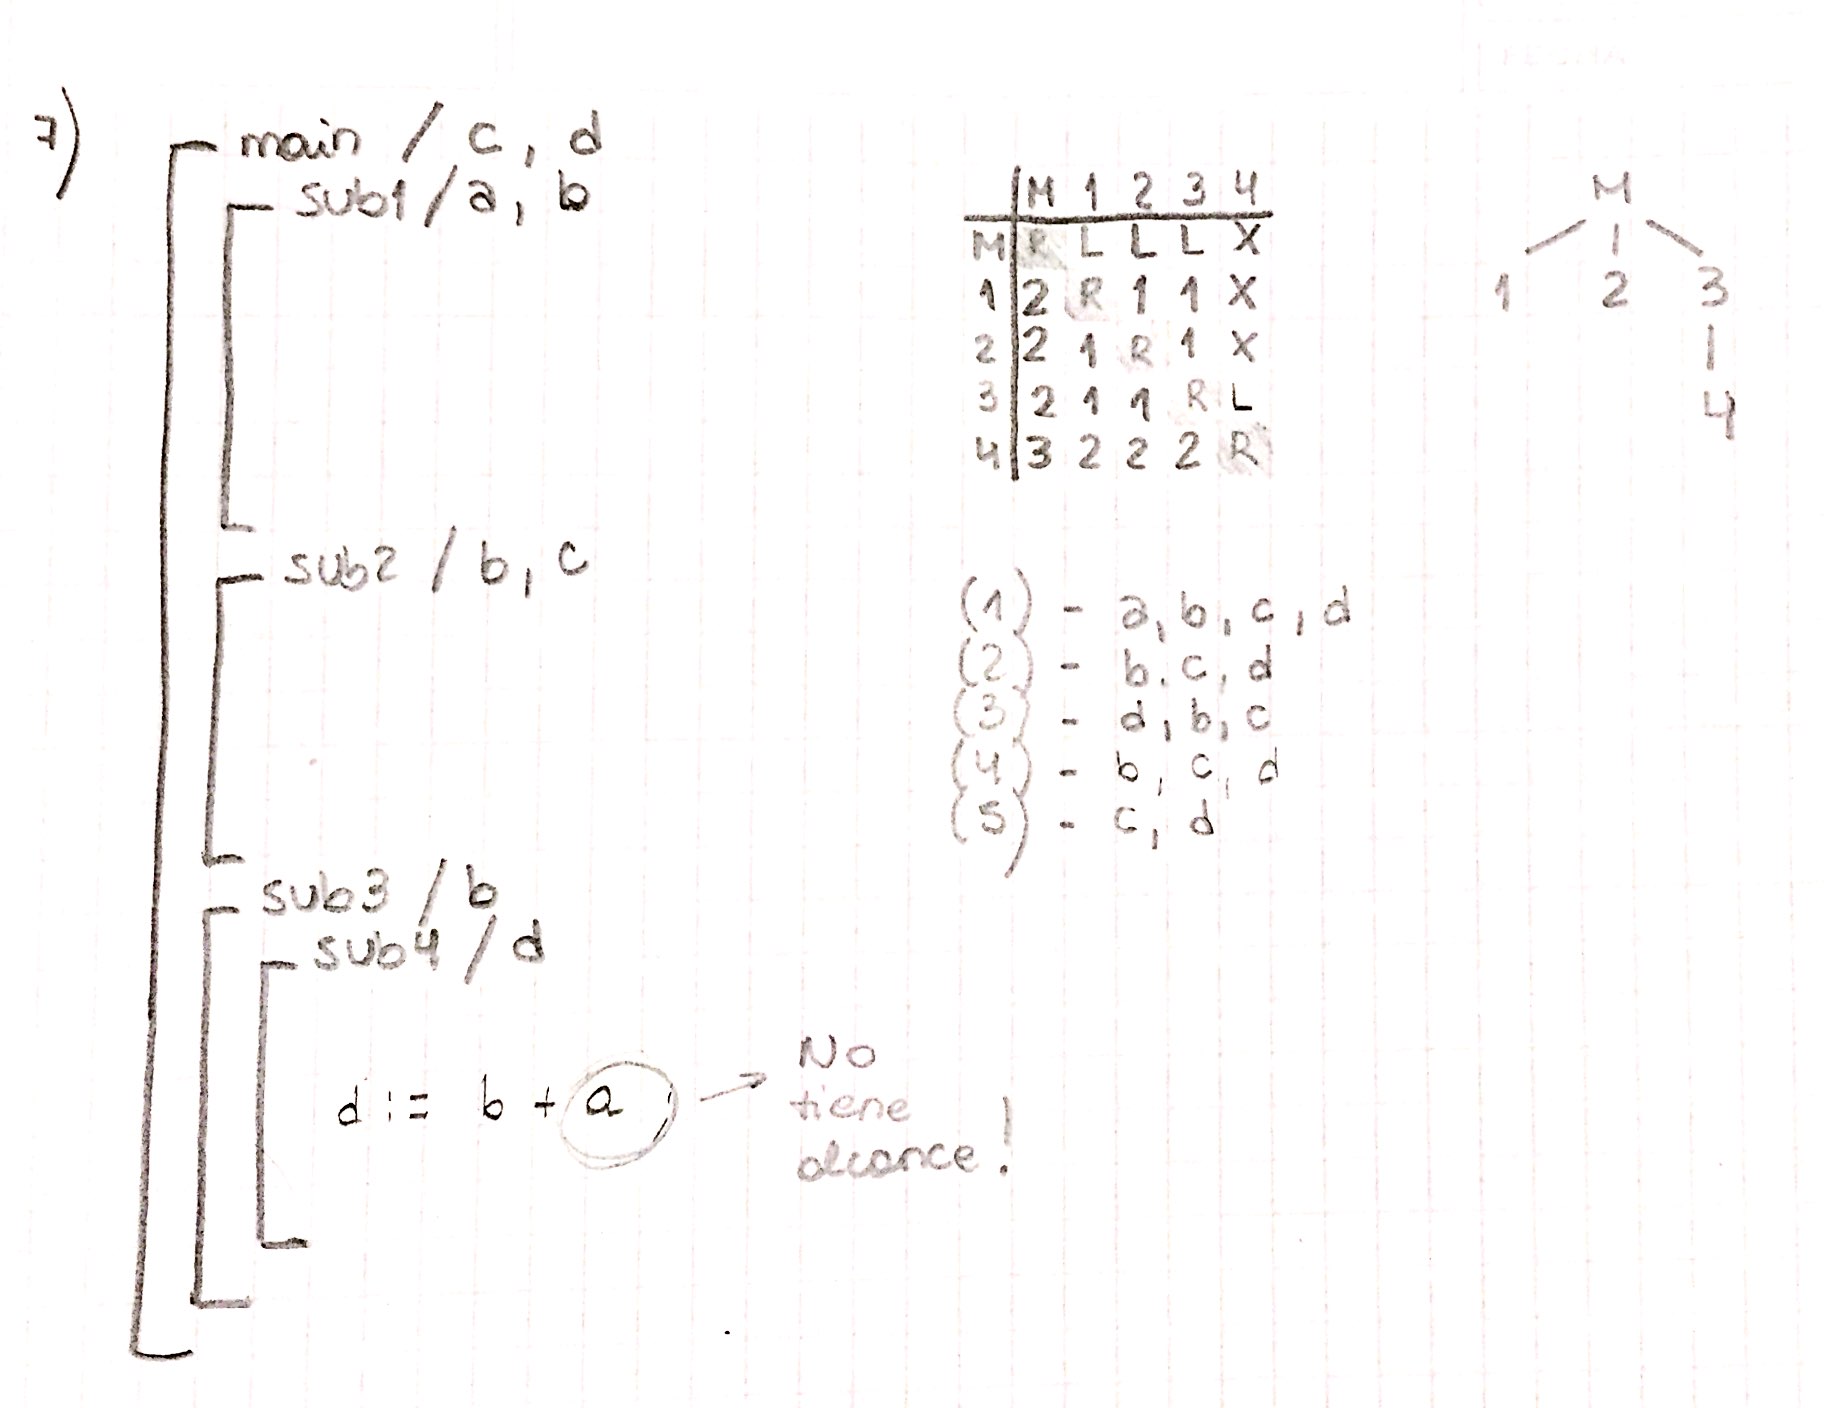 7)
main / c, d
sub1 / a, b
sub2 / b, c
sub3 / b
sub4 / d
d := b + a
No
tiene
alcance!
M 1 2 3 4
M R L L L X
1 2 R 1 1 X
2 2 1 R 1 X
3 2 1 1 R L
4 3 2 2 2 R
M
1 2 3
4
(1) - a, b, c, d
(2) - b, c, d
(3) - d, b, c
(4) - b, c, d
(5) - c, d